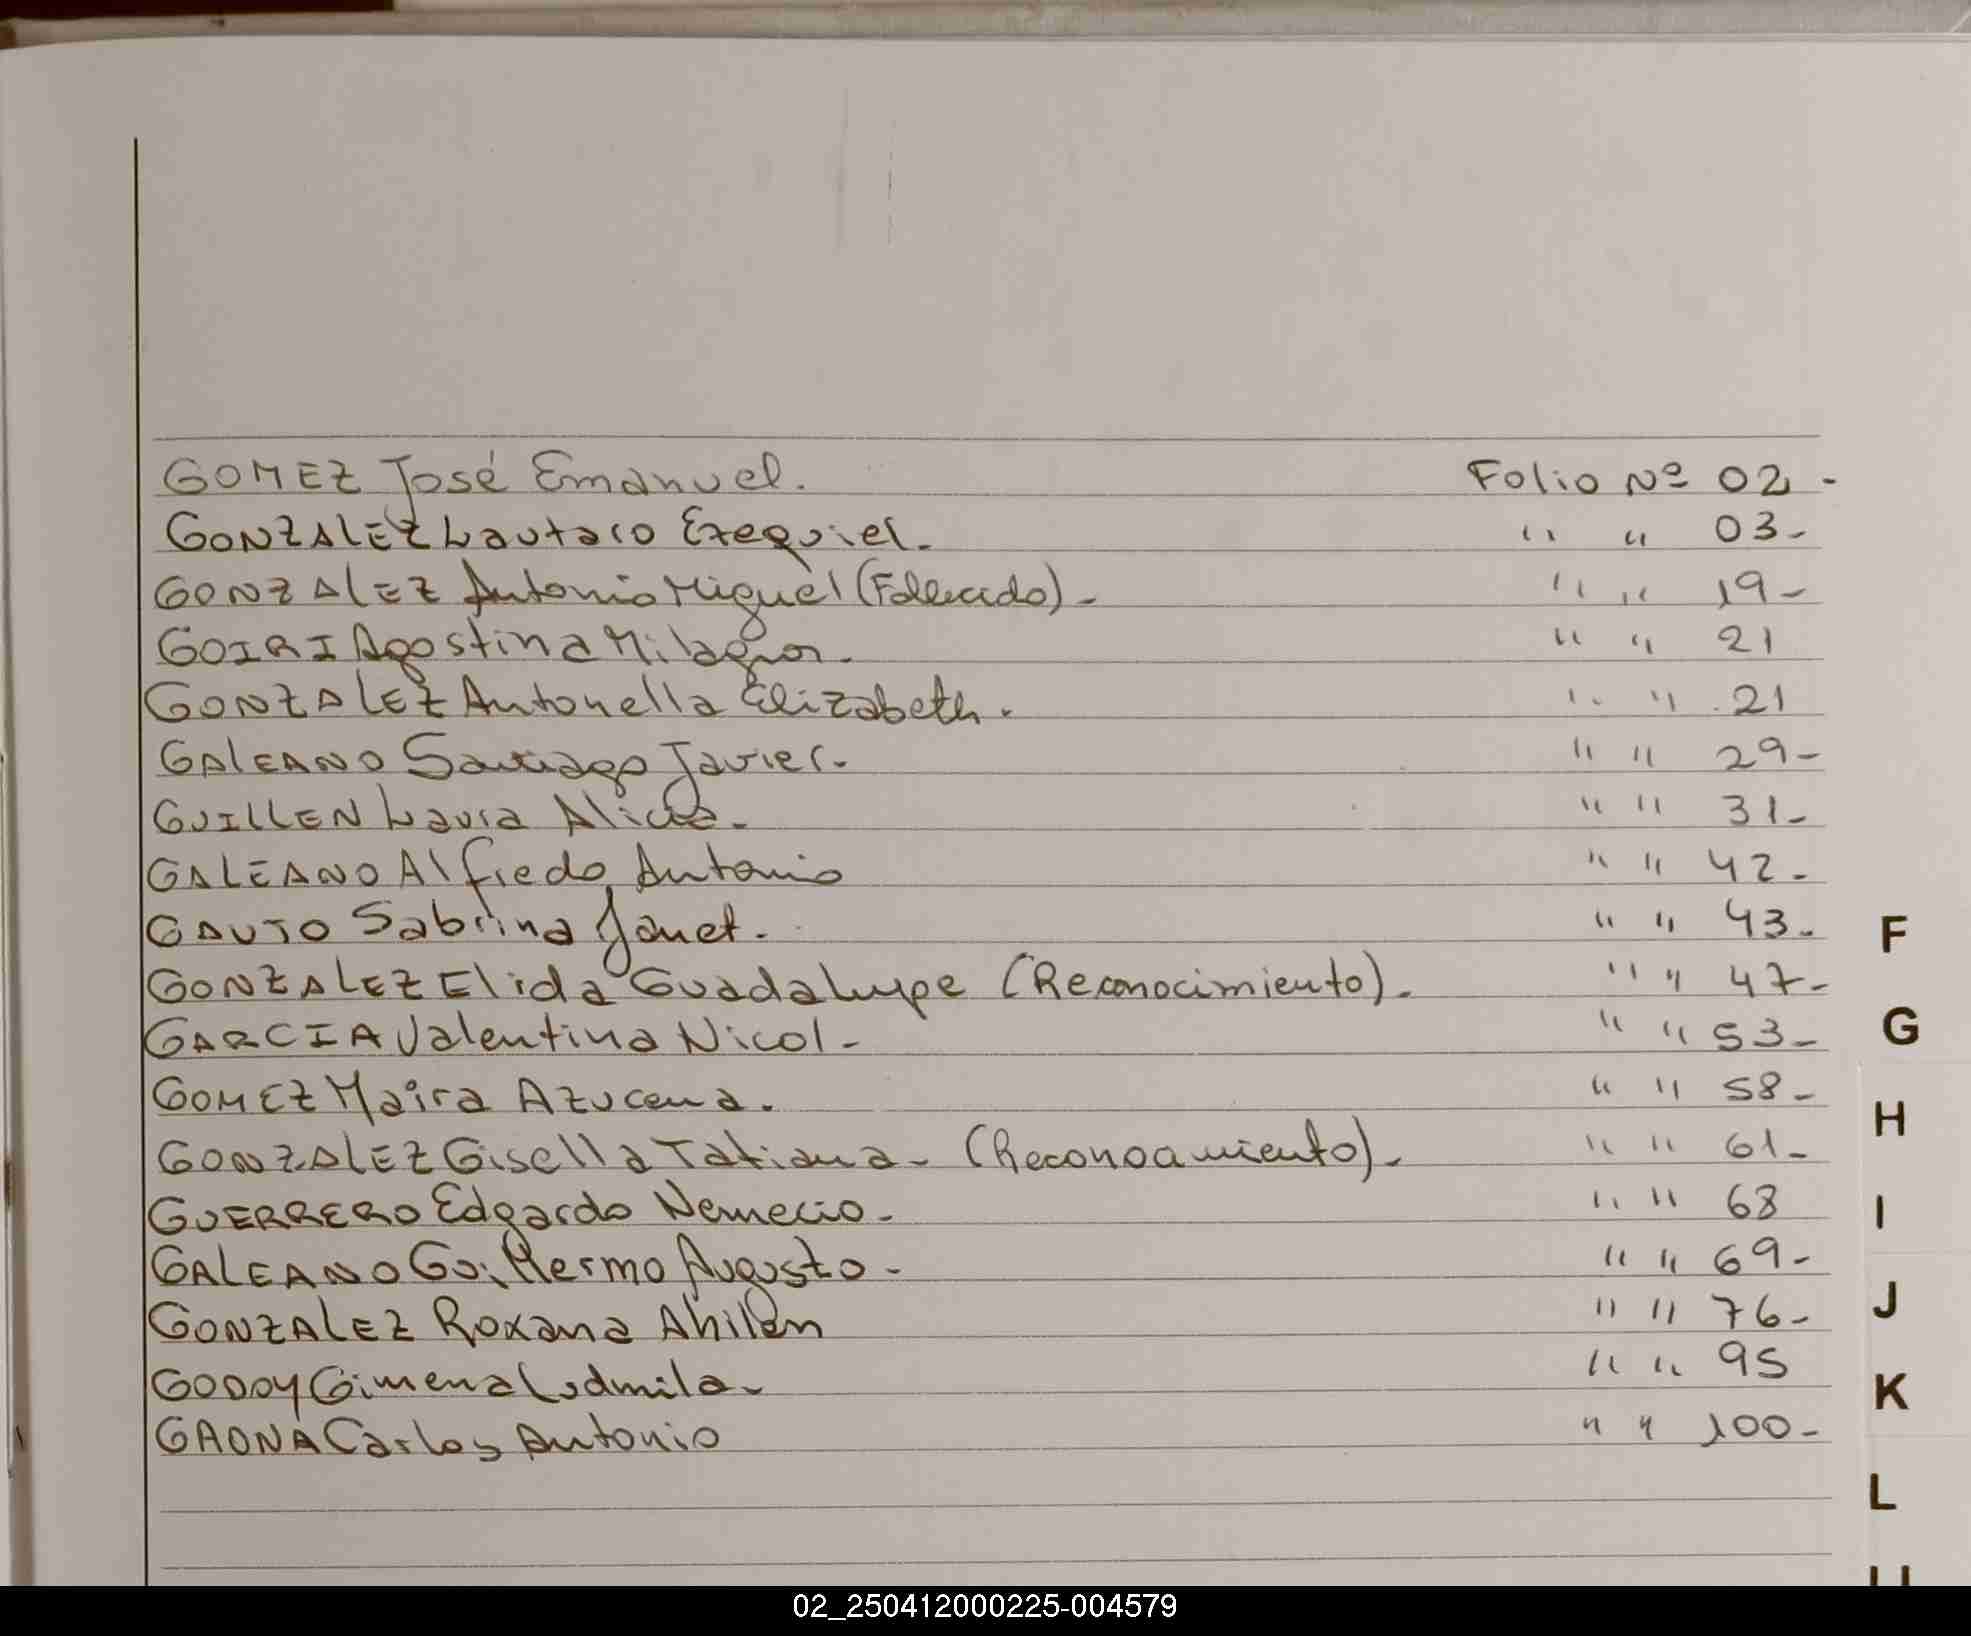 GOMEZ José Emanuel. Folio Nº 02-
GONZALEZ Lautaro Ezequiel. " " 03-
GONZALEZ Antonio Miguel (Fallecido)- " " 19-
GOIRI Agostina Milagros. " " 21
GONZALEZ Antonella Elizabeth. " " 21
GALEANO Santiago Javier. " " 29-
GUILLEN Laura Alicia. " " 31-
GALEANO Alfredo Antonio " " 42-
GAUTO Sabrina Janet. " " 43-
GONZALEZ Elida Guadalupe (Reconocimiento). " " 47-
GARCIA Valentina Nicol- " " 53-
GOMEZ Maira Azucena. " " 58-
GONZALEZ Gisella Tatiana- (Reconocimiento)- " " 61-
GUERRERO Edgardo Nemecio- " " 68
GALEANO Guillermo Augusto- " " 69-
GONZALEZ Roxana Ahilen " " 76-
GODOY Gimena Ludmila- " " 95
GAONA Carlos Antonio " " 100-
F
G
H
I
J
K
L
02_250412000225-004579